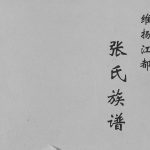 维扬江都
张氏族谱